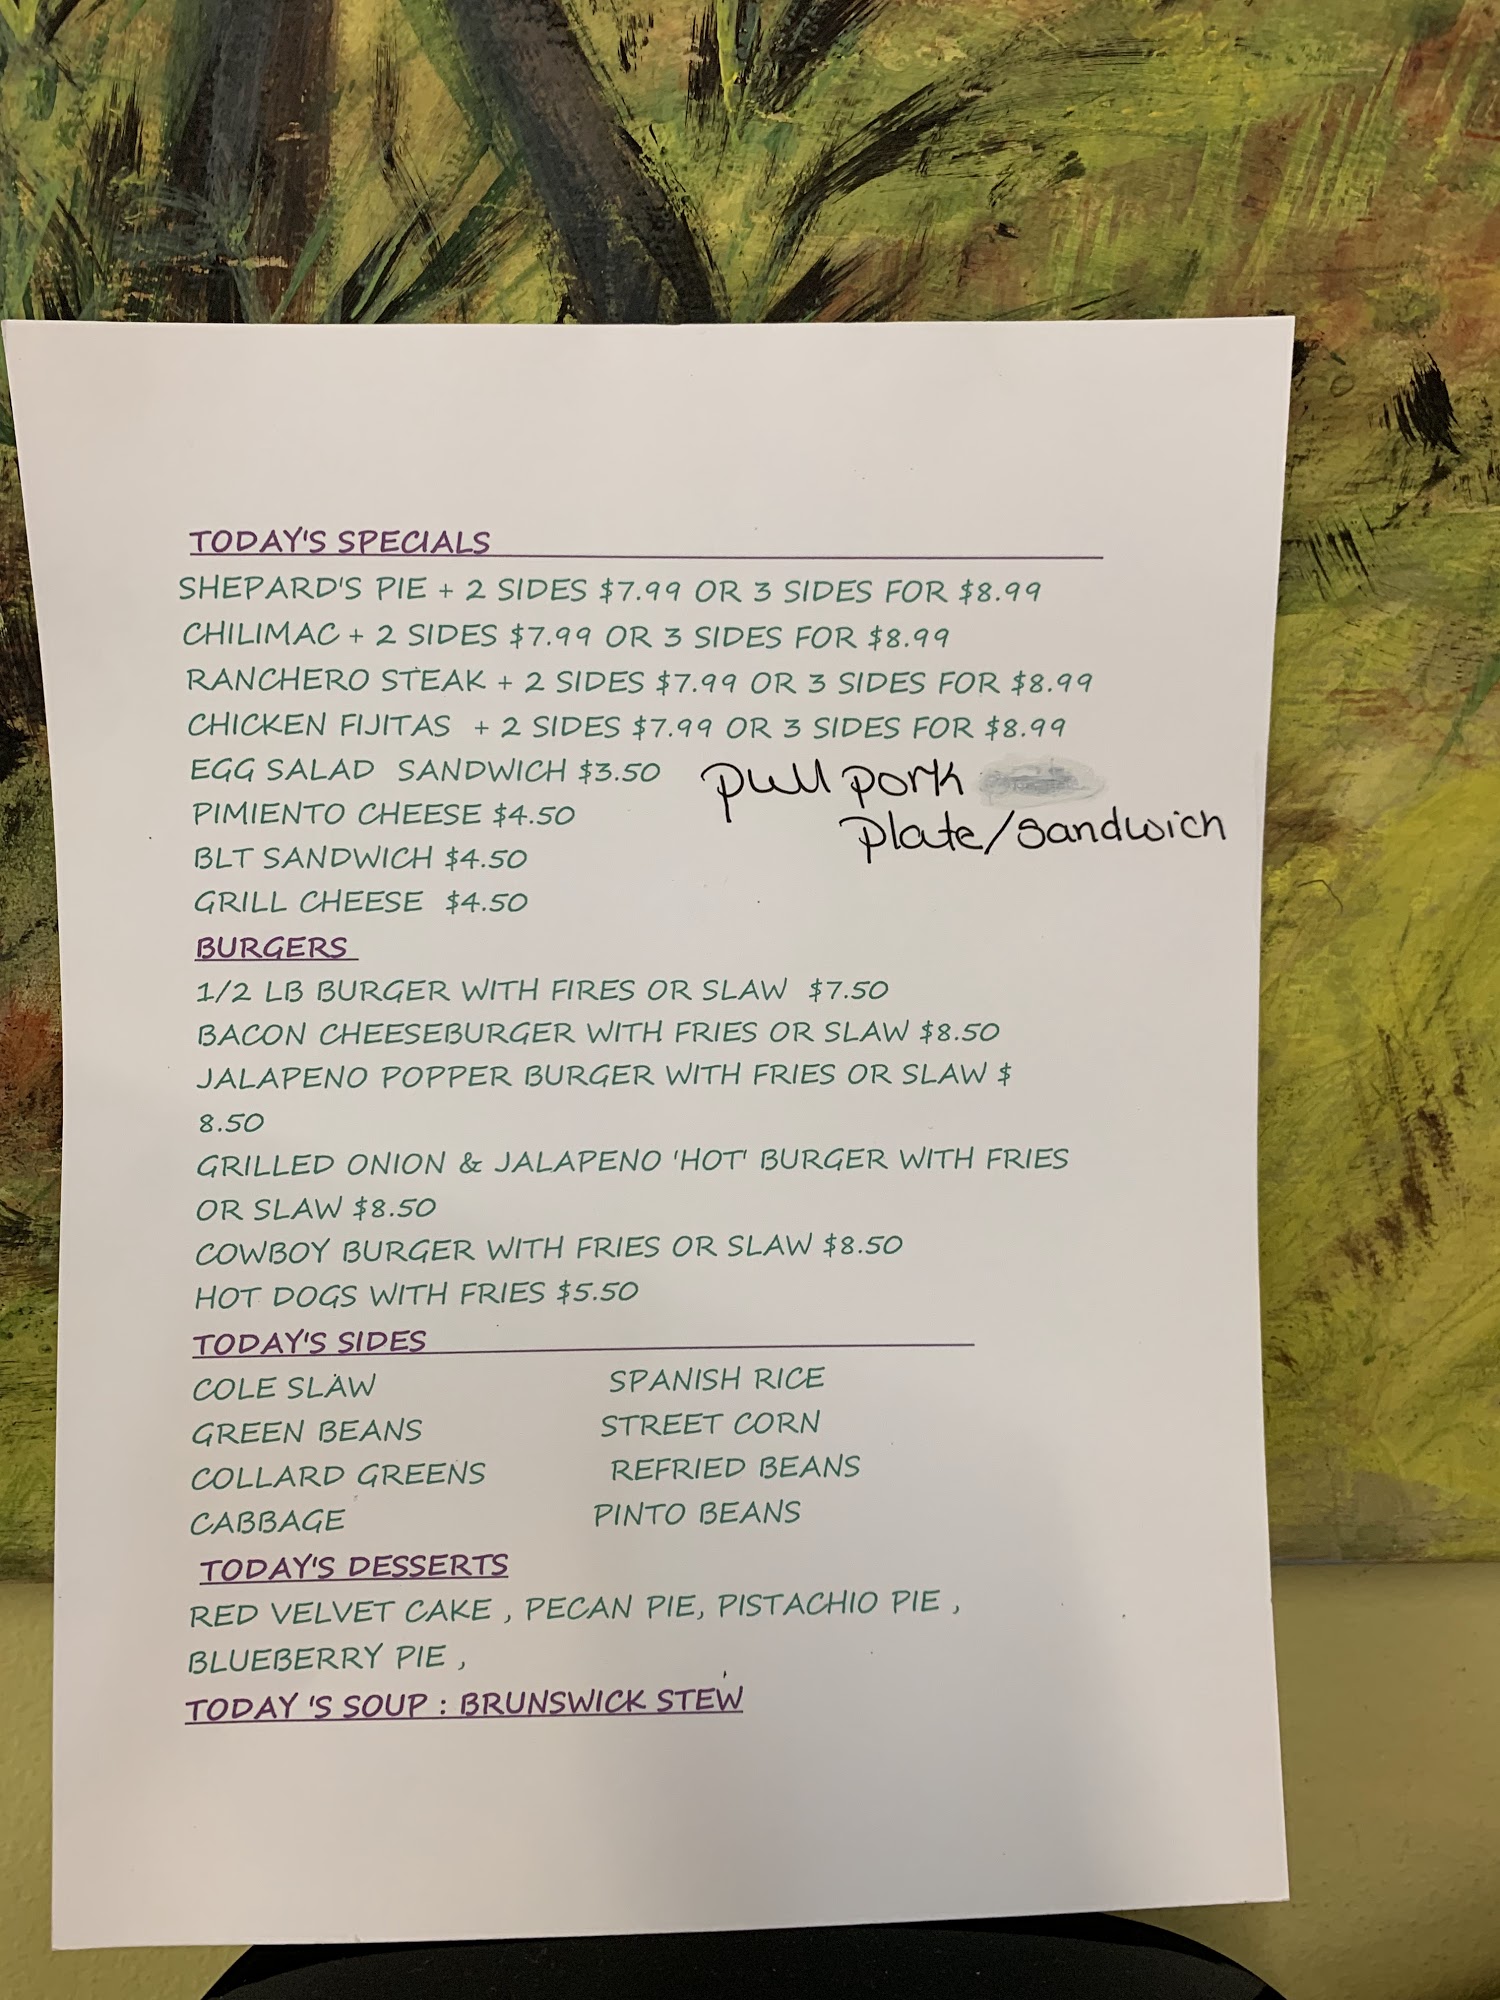 TODAY'S SPECIALS
SHEPARD'S PIE + 2 SIDES $7.99 OR 3 SIDES FOR $8.99
CHILIMAC + 2 SIDES $7.99 OR 3 SIDES FOR $8.99
RANCHERO STEAK + 2 SIDES $7.99 OR 3 SIDES FOR $8.99
CHICKEN FIJITAS + 2 SIDES $7.99 OR 3 SIDES FOR $8.99
EGG SALAD SANDWICH $3.50 pull pork
PIMIENTO CHEESE $4.50 plate/sandwich
BLT SANDWICH $4.50
GRILL CHEESE $4.50
BURGERS
1/2 LB BURGER WITH FIRES OR SLAW $7.50
BACON CHEESEBURGER WITH FRIES OR SLAW $8.50
JALAPENO POPPER BURGER WITH FRIES OR SLAW $
8.50
GRILLED ONION & JALAPENO 'HOT' BURGER WITH FRIES
OR SLAW $8.50
COWBOY BURGER WITH FRIES OR SLAW $8.50
HOT DOGS WITH FRIES $5.50
TODAY'S SIDES
COLE SLAW SPANISH RICE
GREEN BEANS STREET CORN
COLLARD GREENS REFRIED BEANS
CABBAGE PINTO BEANS
TODAY'S DESSERTS
RED VELVET CAKE , PECAN PIE, PISTACHIO PIE ,
BLUEBERRY PIE ,
TODAY 'S SOUP : BRUNSWICK STEW